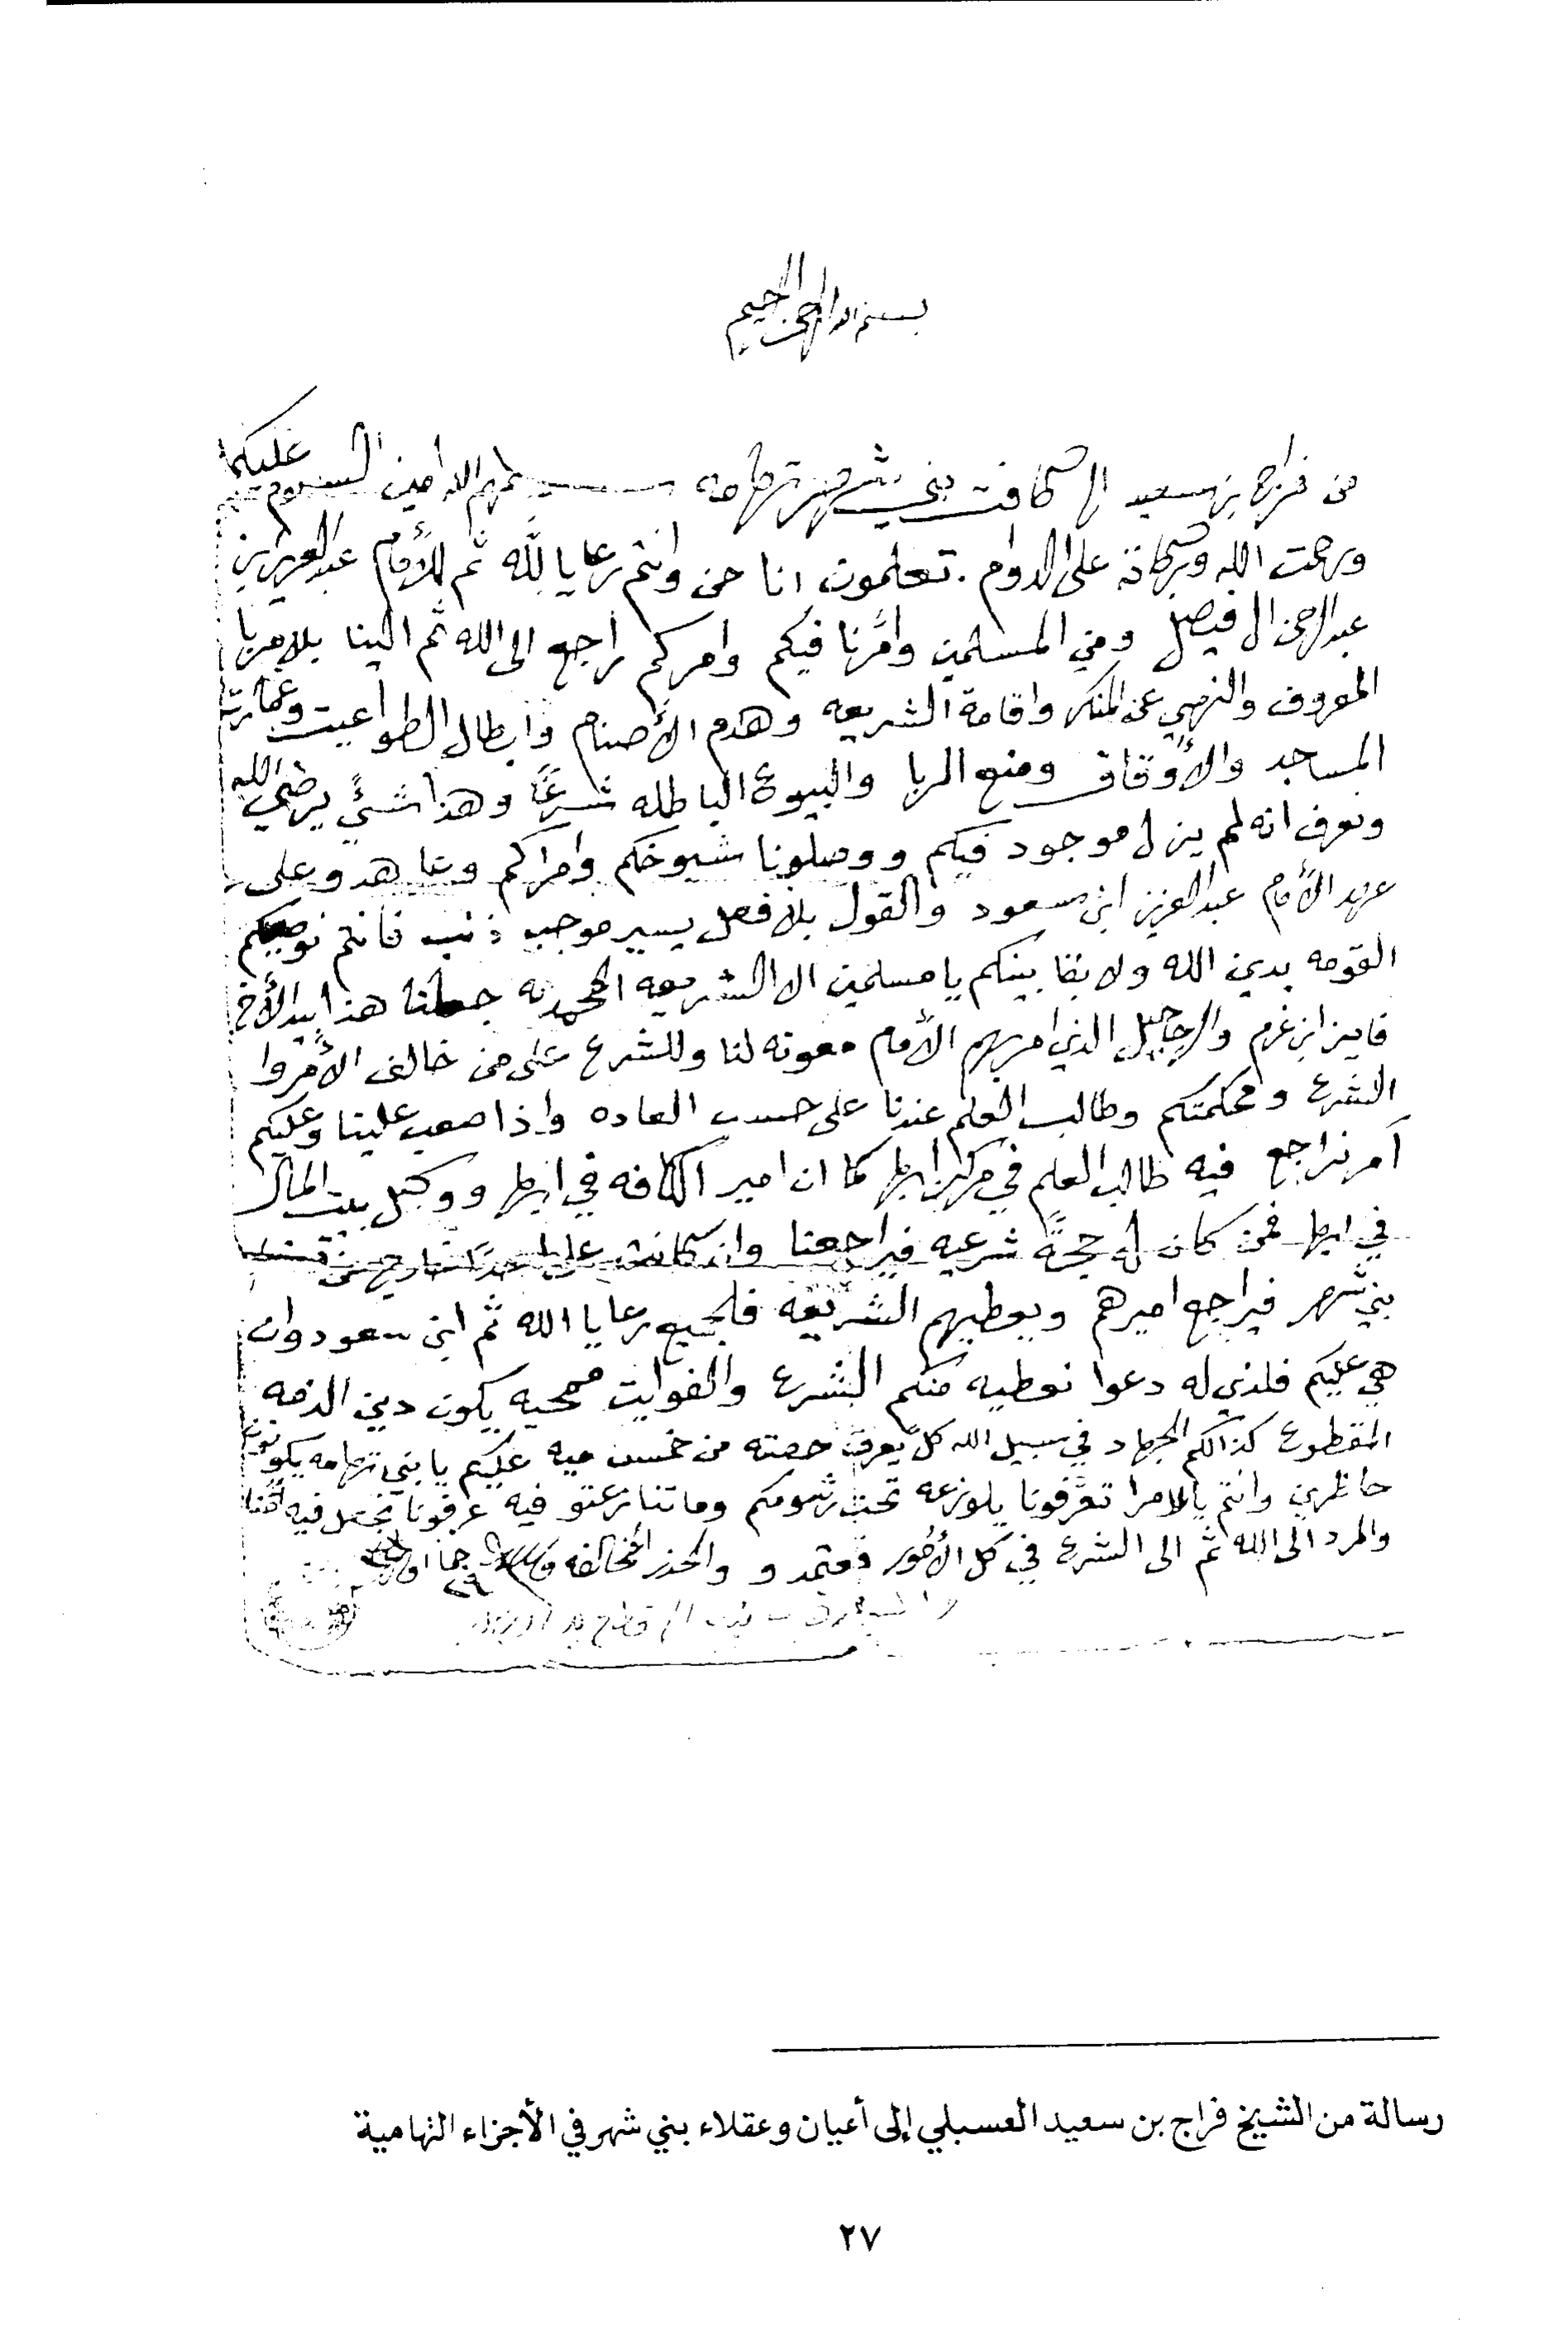 بسم الله الرحمن الرحيم
من فراج بن سعيد الى كافت بني شهر تهامه سلمهم الله امين السلام عليكم
ورحمت الله وبركاته على الدوام. تعلمون انا حن وانتم رعايا لله ثم للأمام عبدالعزيز بن
عبدالرحمن ال فيصل ومن المسلمين وامرنا فيكم وامركم راجع الى الله ثم الينا بلامر بال
المعروف والنهي عن المنكر واقامة الشريعه وهدم الأصنام وابطال الطواغيت وعمارت
المساجد والأوقاف ومنع الربا والبيوع الباطله شرعاً وهذا شئ يرضي الله
ونعرف انه لم يزل موجود فيكم ووصلونا شيوخكم وامراكم وعاهدو على
عهد الأمام عبدالعزيز ابن سعود والقول بلا فعل يسير موجب ذنب فانتم نوصيكم
القومه بدين الله ولا بقا بينكم يا مسلمين الا الشريعه المحمديه جعلنا هذا بيد الأخ
فايز ابن غرم والرجاجيل الذي امر بهم الأمام معونه لنا وللشرع على من خالف الأمر وا
الشرع ومحكمتكم وطالب العلم عندنا على حسب العاده واذا صعب علينا وعليكم
أمر نراجع فيه طالب العلم في مركز ابها كما ان امير الكافه في ابها ووكيل بيت المال
في ابها فمن كان له حجةً شرعيه فيراجعنا وان كانت على احداً خارج من
بني شهر فيراجع اميرهم ويعطيهم الشريعه فلجميع رعايا الله ثم ابن سعود وان
هي عليكم فلذي له دعوا نعطيه منكم الشرع والفوايت ممحيه يكون دين الذمه
المقطوع كذالكم الجهاد في سبيل الله كل يعرف حصته من خمسن ميه عليكم يا بني تهامه يكونون
حاظرين وانتم يالامرا تعرفونا بلوزعه تحت رشومكم وما تنازعتو فيه عرفونا نجعل فيه
والمرد الى الله ثم الى الشرع في كل الأمور فعتمدو والحذر المخالفه
رسالة من الشيخ فراج بن سعيد العسبلي إلى أعيان وعقلاء بني شهر في الأجزاء التهامية
٢٧